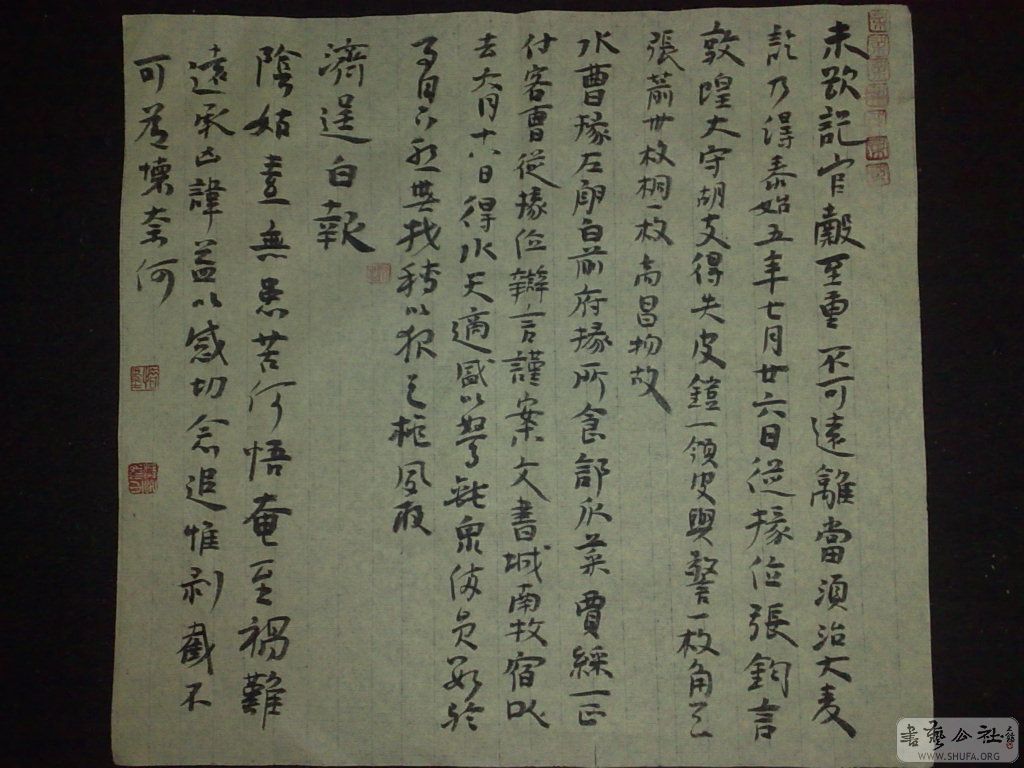 未欲記官穀至重不可遠離當須治大麦
訖乃得泰始五年七月廿六日從掾位張鈞言
敦煌大守胡支得失皮鎧一領皮興鍪一枚角弓
張箭卅枚桐一枚高昌物故
水曹掾左朗白前府掾所食部瓜菜賈綵一匹
付客曹從掾位辯言謹案文書城南牧宿以
去六月十八日得水天適盛以
濟逞白報
陰姑素無患苦何悟奄至禍難
遠承凶諱益以感切念追惟剥截不
可為懷奈何
書藝公社
WWW.SHUFA.ORG